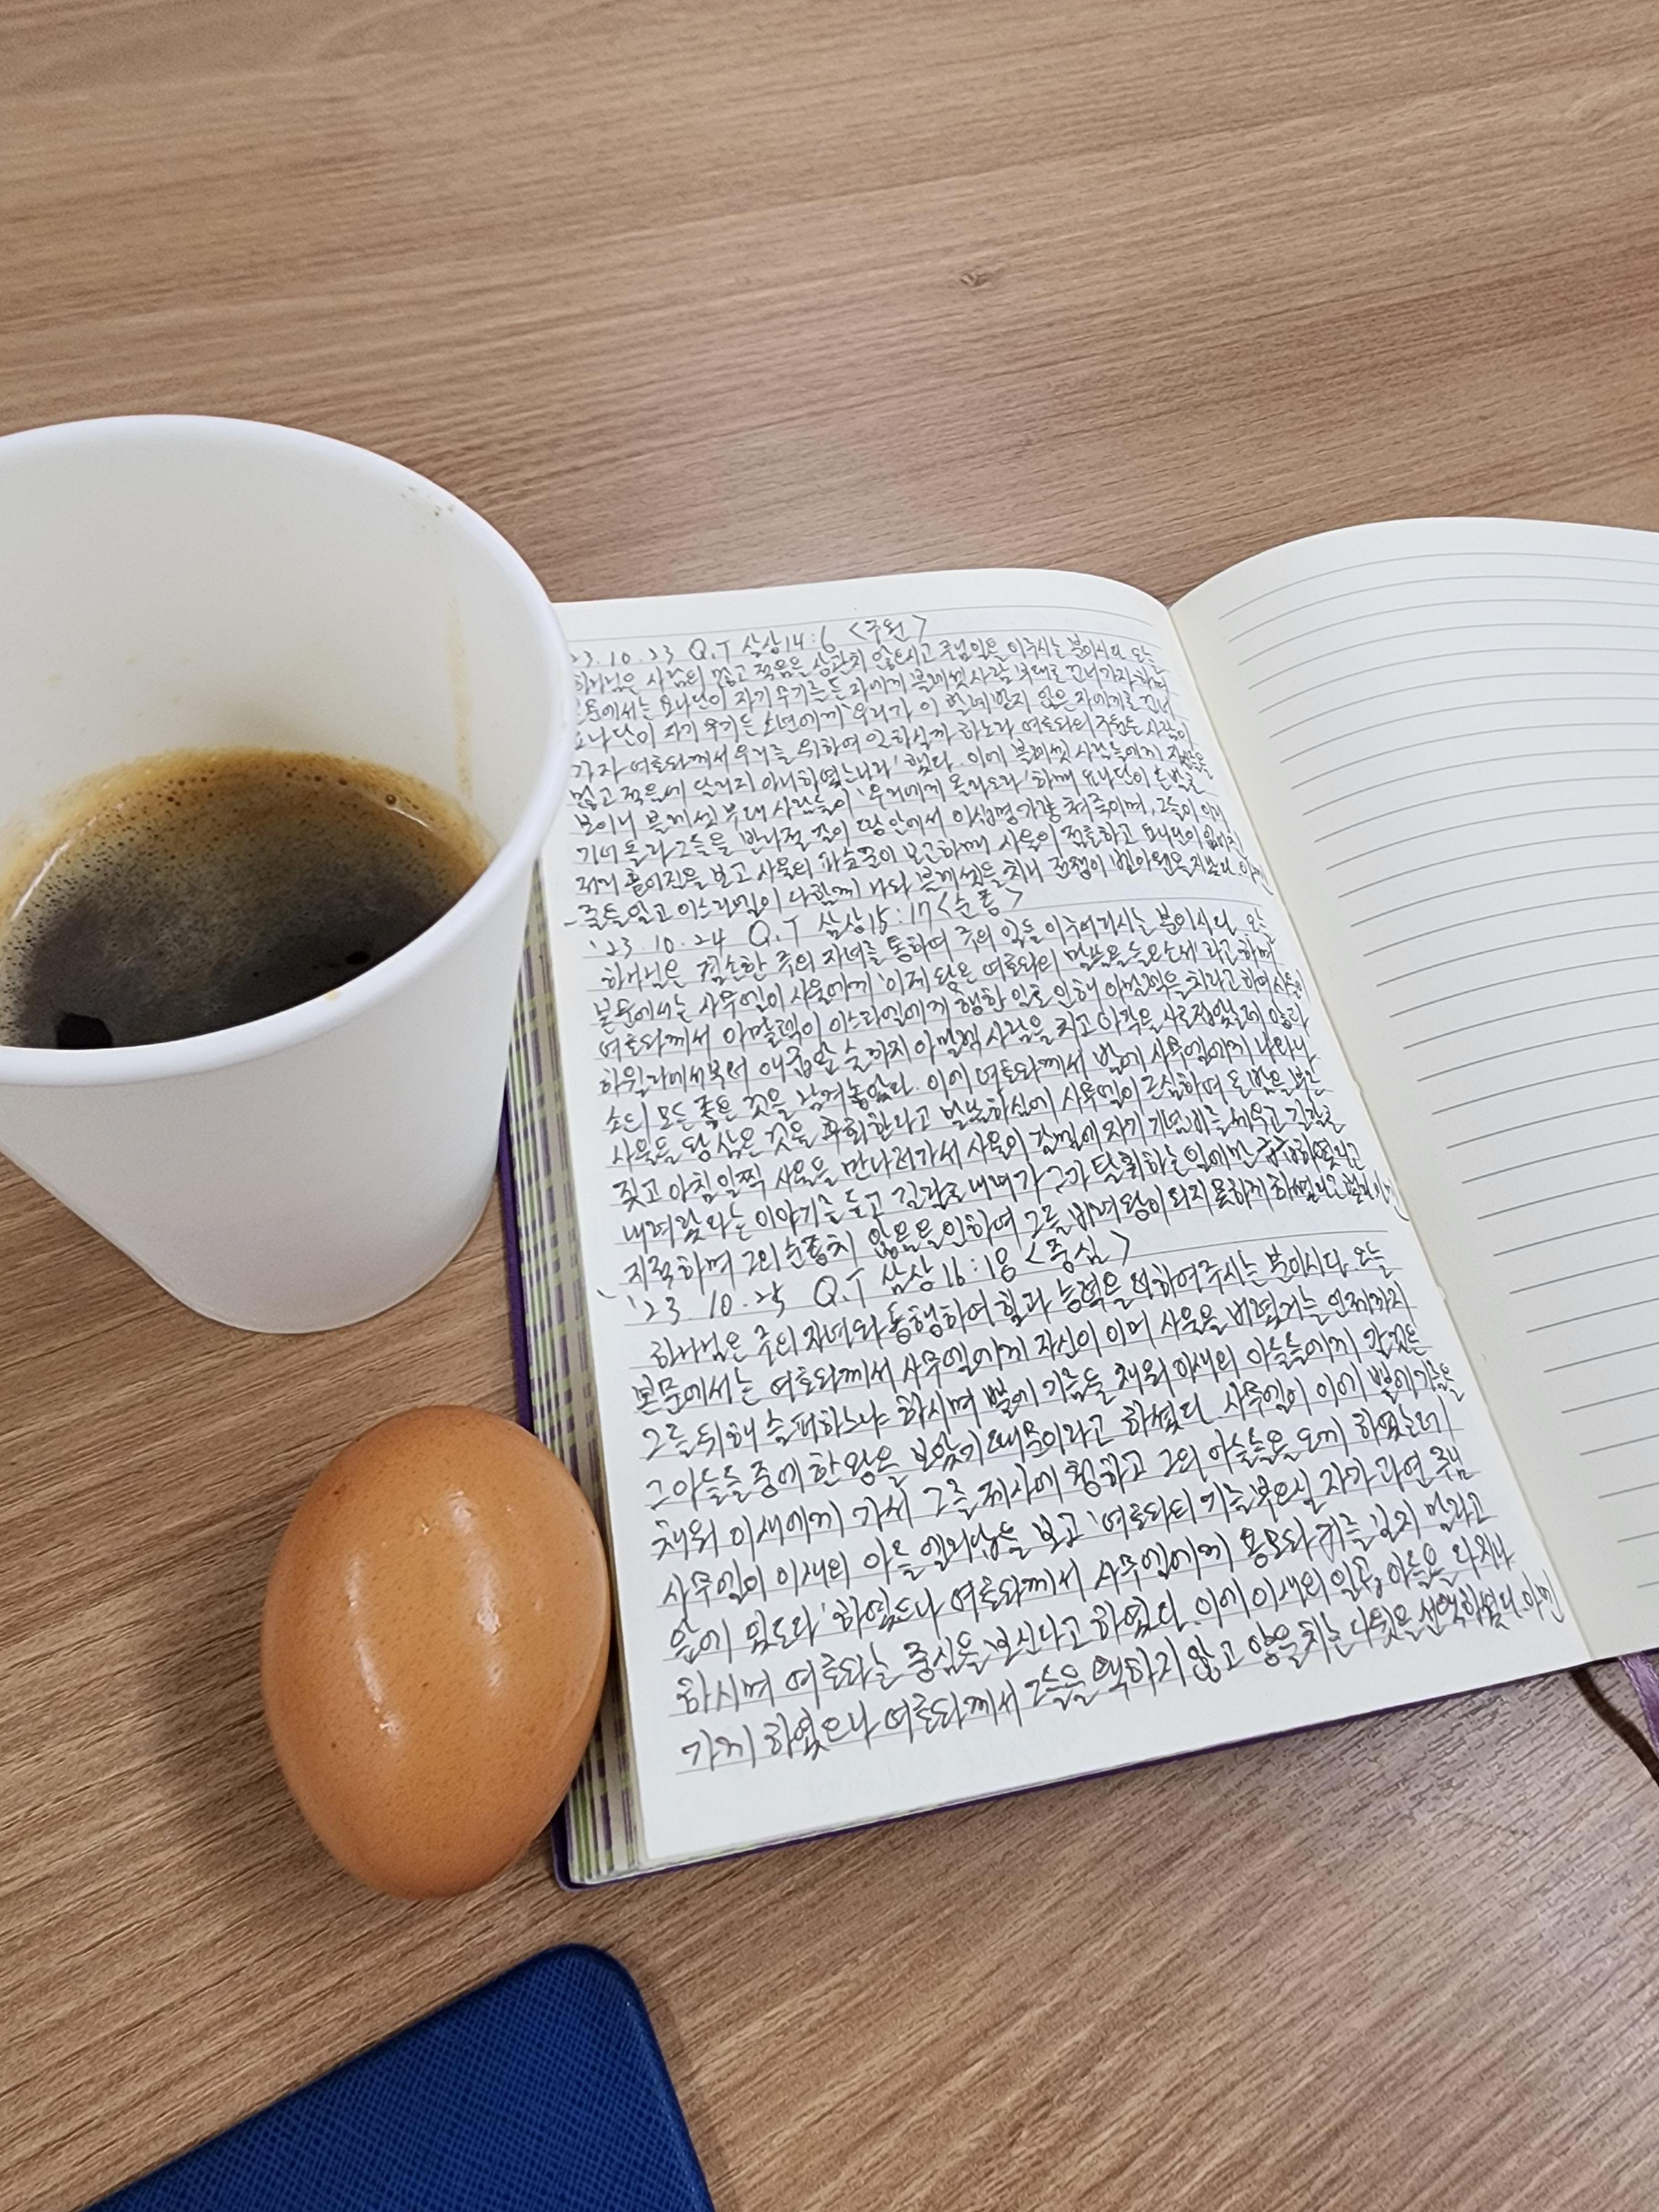 23. 10. 23 Q.T 삼상14:6 <구원>
하나님은 사람의 많고 적음은 상관치 않으시고 주님 일을 이루시는 분이시다. 오늘
본문에서는 요나단이 자기 무기를 든 자에게 블레셋 사람 부대로 건너가자 하며
요나단이 자기 무기든 소년에게 '우리가 이 할례받지 않은 자에게로 건너
가자 여호와께서 우리를 위하여 일하실까 하노라 여호와의 구원은 사람이
많고 적음에 달리지 아니하였느니라' 했다. 이에 블레셋 사람들에게
보이니 블레셋 부대 사람들이 '우리에게 올라오라' 하매 요나단이 손발로
기어 올라 그들을 반나절 갈이 땅 안에서 이십명 가량 쳐죽이며, 그들이
보고 사울의 파숫꾼이 보고하매 사울이 점호하고 요나단이 없어진
줄을 알고 이스라엘이 다함께 나와 블레셋을 치니 전쟁이
'23. 10. 24 Q.T 삼상15:17 <순종>
하나님은 겸손한 주의 자녀를 통하여 주의 일을 이루어가시는 분이시다. 오늘
본문에서는 사무엘이 사울에게 '이제 왕은 여호와의 말씀을 들으소서' 라고 하며
여호와께서 아말렉이 이스라엘에게 행한 일로 인해 아말렉을 치라고 하여 사울이
하윌라에서부터 애굽 앞 술까지 아말렉 사람을 치고 아각을 사로잡았는데
소의 모든 좋은 것을 남겨놓았다. 이에 여호와께서 밤에 사무엘에게 나타나
사울을 왕 삼은 것을 후회한다고 말씀하심에 사무엘이 근심하며 온 밤을 부르
짖고 아침 일찍 사울을 만나러가서 사울이 갈멜에 자기 기념비를 세우고 길갈로
내려갔다는 이야기를 듣고 길갈로 내려가 그가 탈취하는 일에만 급급하였다고
지적하며 그의 순종치 않음을 인하여 그를 버려 왕이 되지 못하게 하셨다고
'23. 10. 25 Q.T 삼상16:18 <중심>
하나님은 주의 자녀와 동행하여 힘과 능력을 더하여주시는 분이시다. 오늘
본문에서는 여호와께서 사무엘에게 자신이 이미 사울을 버렸거늘 언제까지
그를 위해 슬퍼하느냐 하시며 뿔에 기름을 채워 이새의 아들들에게 갈것은
그 아들들 중에 한 왕을 보았기 때문이라고 하셨다. 사무엘이 이에 뿔에 기름을
채워 이새에게 가서 그를 제사에 청하고 그의 아들들을 오게 하였는데
사무엘이 이새의 아들 엘리압을 보고 '여호와의 기름부으실 자가 과연 주님
앞에 있도다' 하였으나 여호와께서 사무엘에게 용모와 키를 보지 말라고
하시며 여호와는 중심을 보신다고 하였다. 이에 이새의 일곱 아들을 다 지나
가게 하였으나 여호와께서 그들을 택하지 않고 양을 치는 다윗을 선택하셨다. 아멘